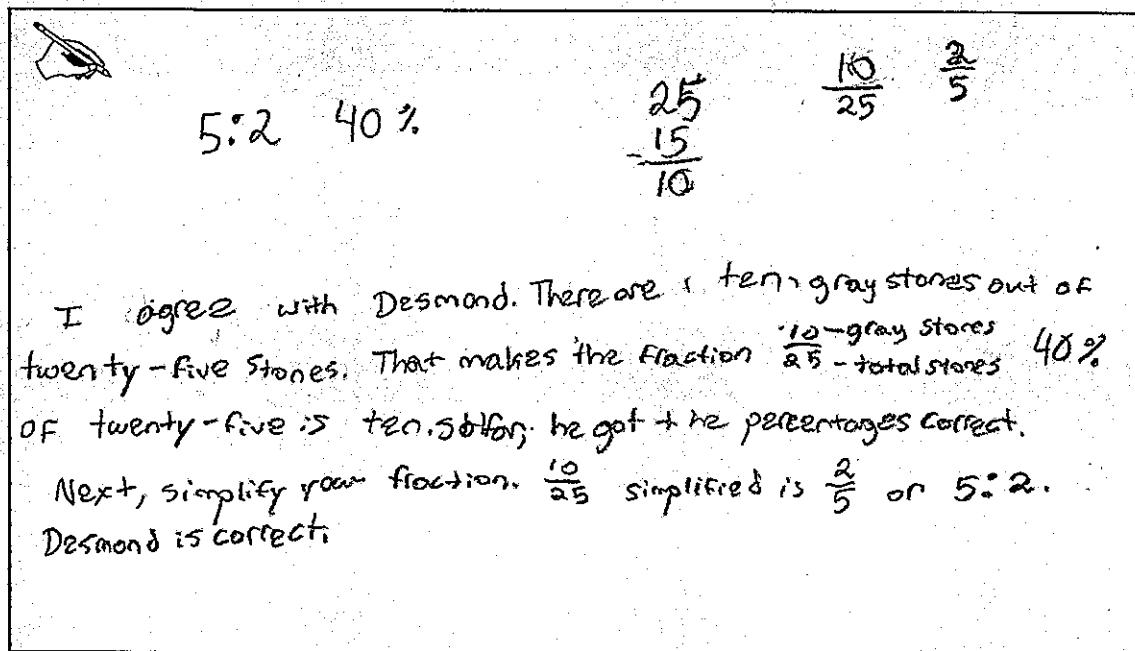 5:2 40%
25
-15
10
10/25 2/5
I agree with Desmond. There are ten gray stones out of
twenty-five stones. That makes the fraction 10/25 -gray stones -total stones 40%
of twenty-five is ten. so far, he got the percentages correct.
Next, simplify your fraction. 10/25 simplified is 2/5 or 5:2.
Desmond is correct.